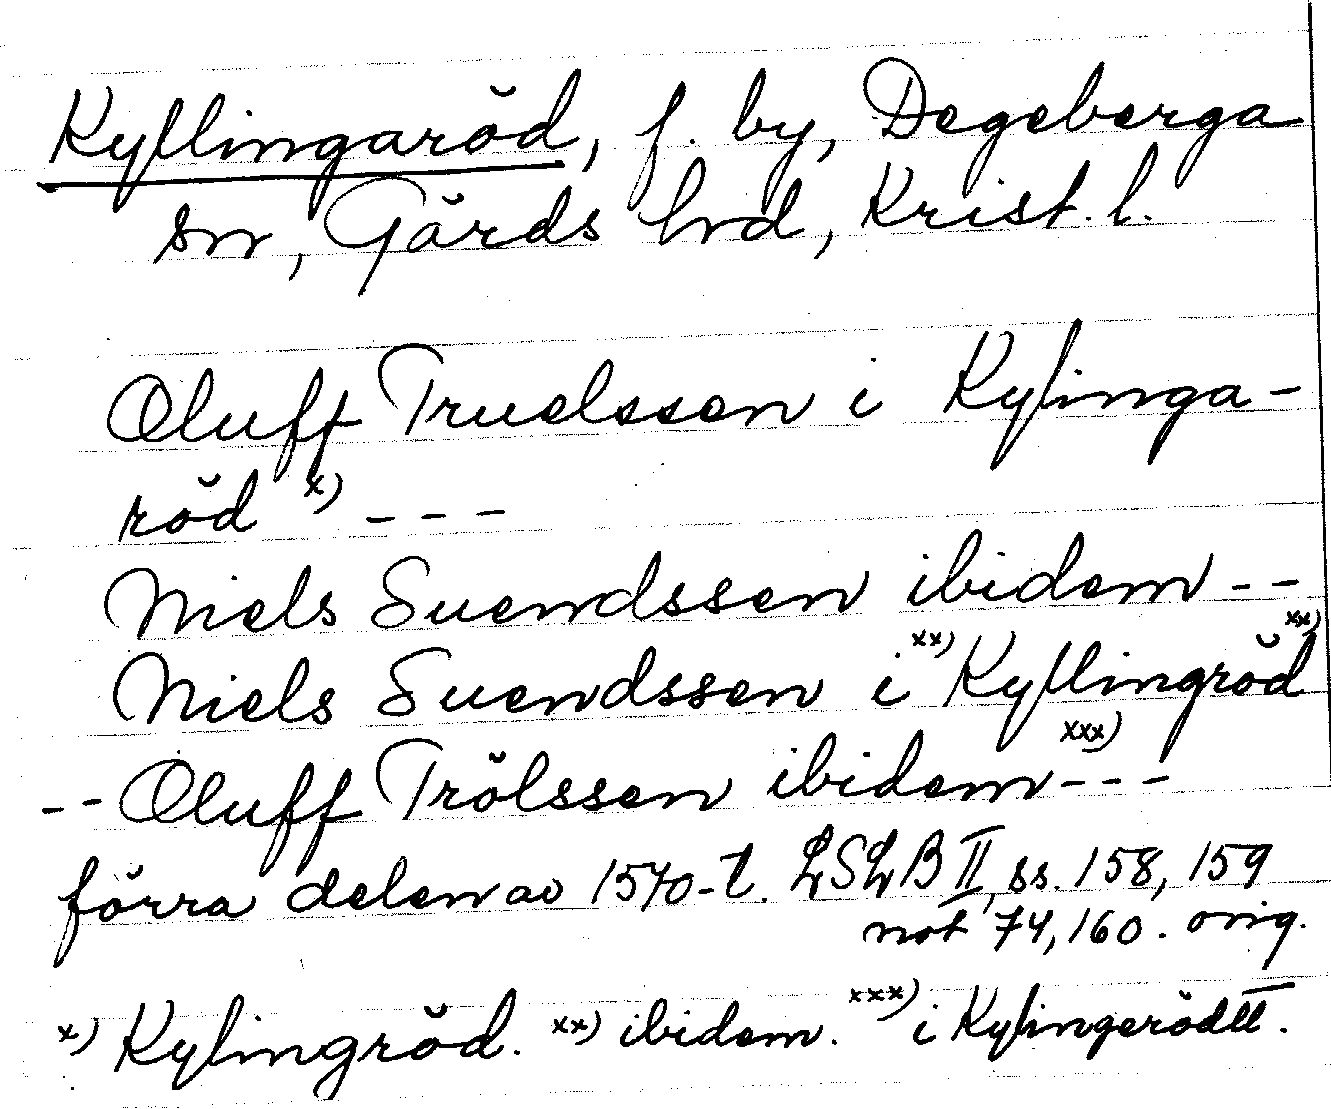 Kyllingaröd, f. by, Degeberga
sn, Gärds hrd, Krist. l.
Oluff Truelssen i Kylinga-
röd x) - - -
Niels Suendssen ibidem - -
Niels Suendssen i xx) Kyllingröd xx)
- - Oluff Trölssen ibidem xxx) - - -
förra delen av 1570-t. LSLB II, ss. 158, 159
not 74, 160. orig.
x) Kylingröd. xx) ibidem. xxx) i Kylingerödtt.